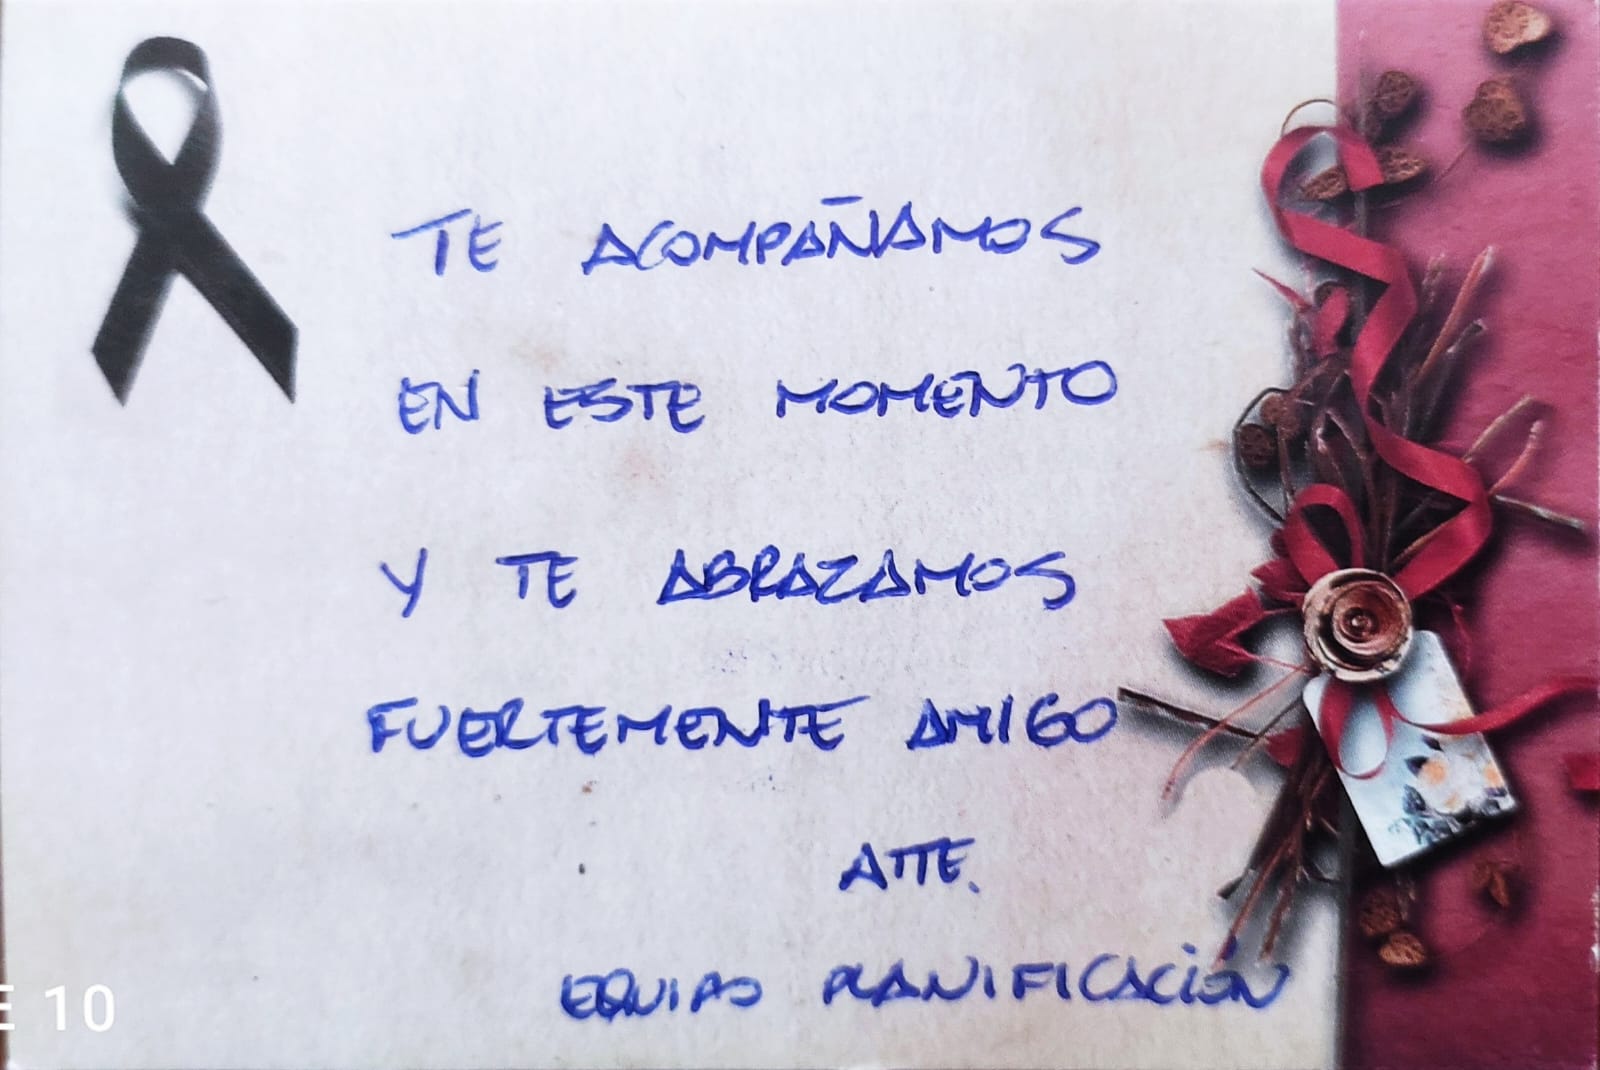 TE ACOMPAÑAMOS
EN ESTE MOMENTO
Y TE ABRAZAMOS
FUERTEMENTE AMIGO
ATTE.
EQUIPO PLANIFICACIÓN
E 10